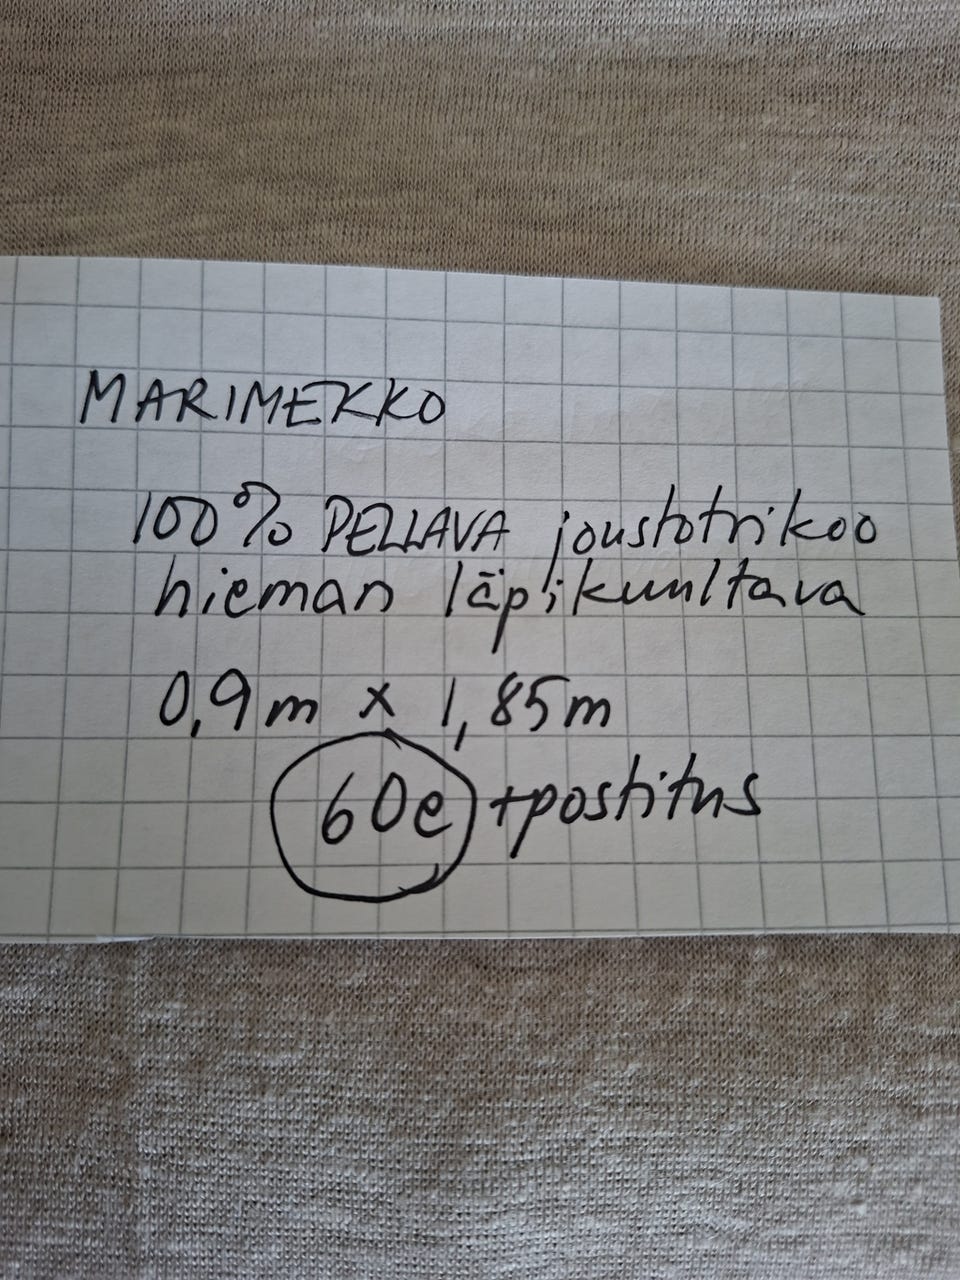 MARIMEKKO
100% PELLAVA joustotrikoo
hieman läpikuultava
0,9m x 1,85m
60e +postitus